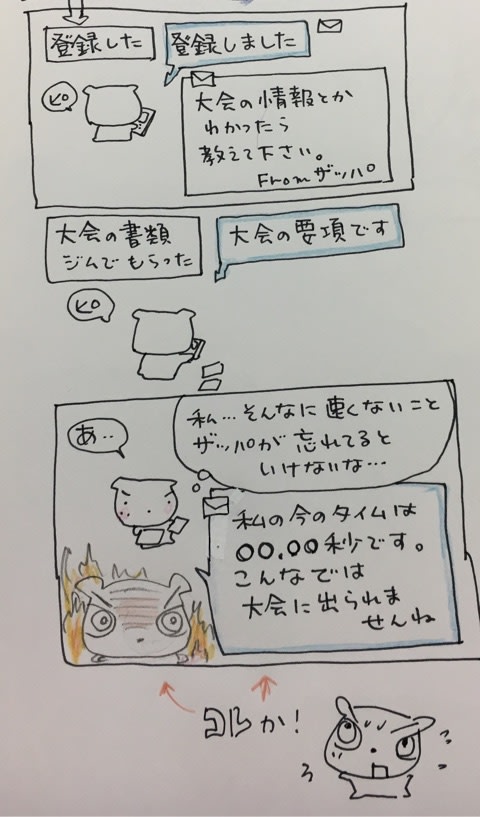 登録した
登録しました
ピロ
大会の情報とか
わかったら
教えて下さい。
Fromザッパ
大会の書類
ジムでもらった
大会の要項です
ピロ
私…そんなに速くないこと
ザッパが忘れてると
いけないな…
あ‥
私の今のタイムは
〇〇.〇〇秒です。
こんなでは
大会に出られま
せんね
コレか!